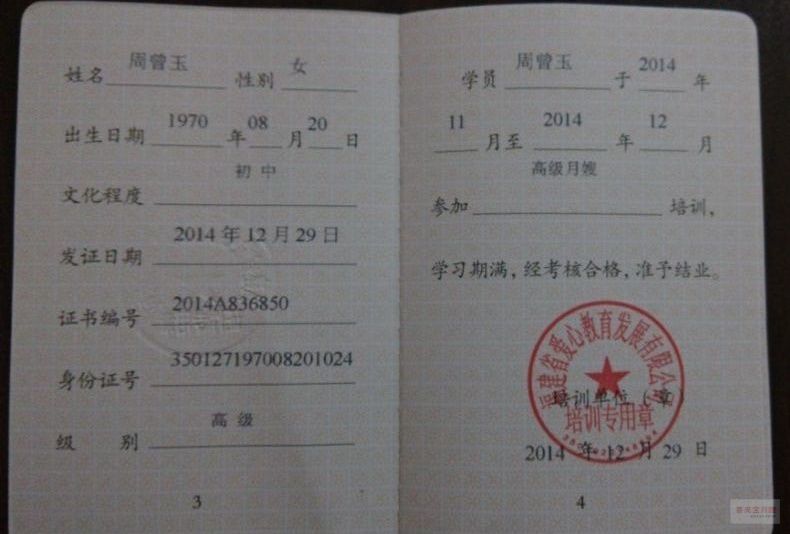 姓名 周曾玉 性别 女
出生日期 1970 年 08 月 20 日
文化程度 初中
发证日期 2014 年 12 月 29 日
证书编号 2014A836850
身份证号 350127197008201024
级 别 高级
3
学员 周曾玉 于 2014 年
11 月至 2014 年 12 月
参加 高级月嫂 培训,
学习期满,经考核合格,准予结业。
福建省爱心教育发展有限公司
培训单位(章)
培训专用章
2014 年 12 月 29 日
4